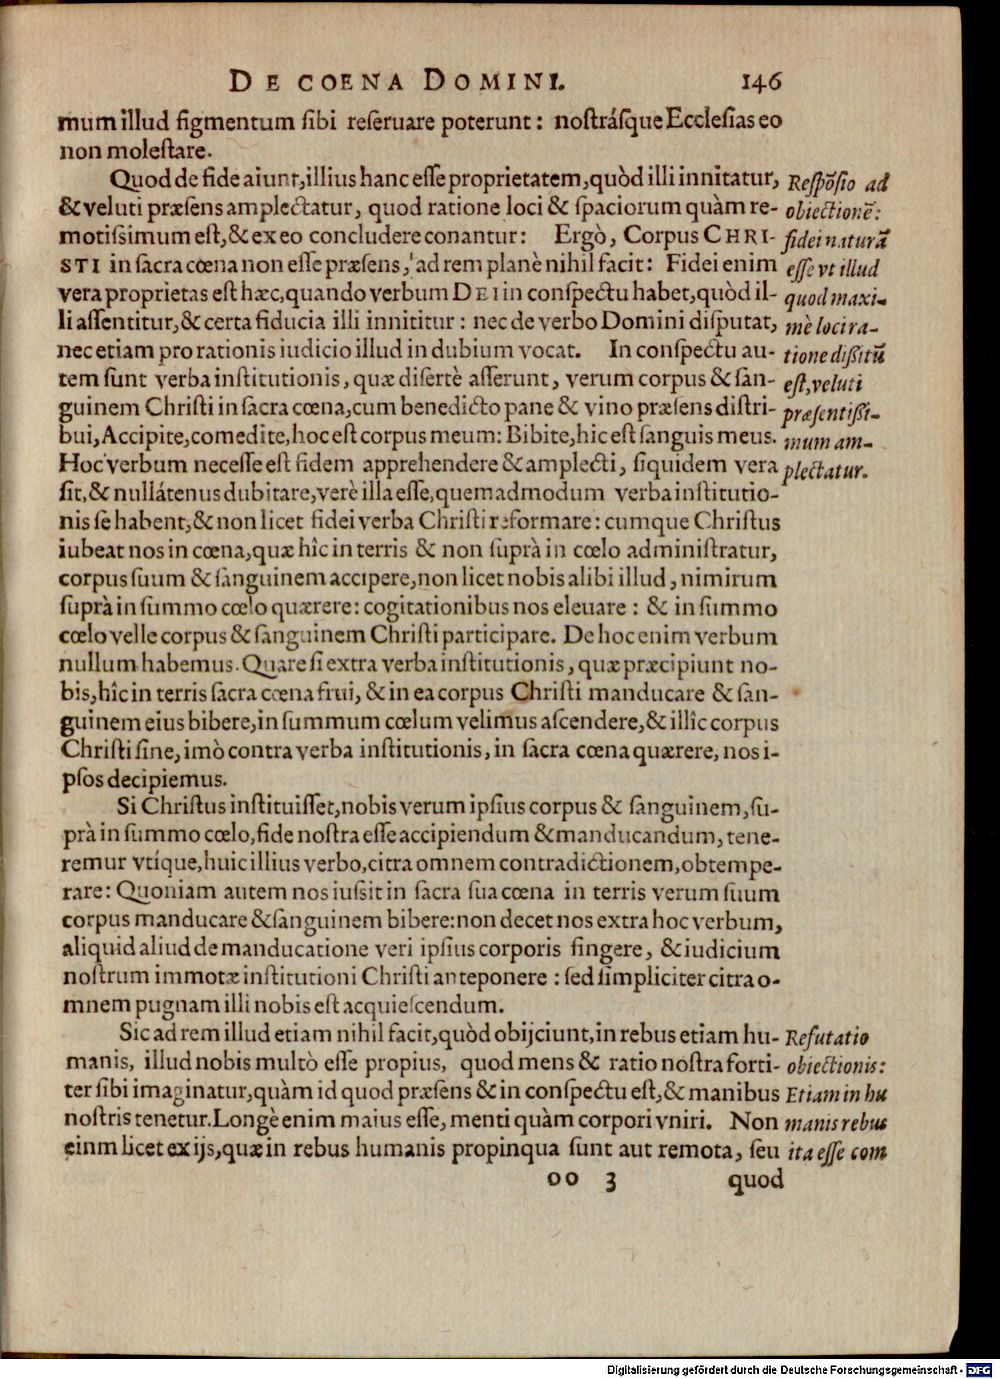 DE COENA DOMINI. 146
mum illud figmentum sibi reseruare poterunt: nostrásque Ecclesias eo
non molestare.
Quod de fide aiunt, illius hanc esse proprietatem, quòd illi innitatur,
& veluti præsens amplectatur, quod ratione loci & spaciorum quàm re-
motissimum est, & ex eo concludere conantur: Ergò, Corpus CHRI-
STI in sacra cœna non esse præsens, ad rem planè nihil facit: Fidei enim
vera proprietas est hæc, quando verbum DEI in conspectu habet, quòd il-
li assentitur, & certa fiducia illi innititur: nec de verbo Domini disputat,
nec etiam pro rationis iudicio illud in dubium vocat. In conspectu au-
tem sunt verba institutionis, quæ disertè asserunt, verum corpus & san-
guinem Christi in sacra cœna, cum benedicto pane & vino præsens distri-
bui, Accipite, comedite, hoc est corpus meum: Bibite, hic est sanguis meus.
Hoc verbum necesse est fidem apprehendere & amplecti, siquidem vera
sit, & nullátenus dubitare, verè illa esse, quemadmodum verba institutio-
nis se habent, & non licet fidei verba Christi reformare: cumque Christus
iubeat nos in cœna, quæ hîc in terris & non suprà in cœlo administratur,
corpus suum & sanguinem accipere, non licet nobis alibi illud, nimirum
suprà in summo cœlo quærere: cogitationibus nos eleuare: & in summo
cœlo velle corpus & sanguinem Christi participare. De hoc enim verbum
nullum habemus. Quare si extra verba institutionis, quæ præcipiunt no-
bis, hîc in terris sacra cœna frui, & in ea corpus Christi manducare & san-
guinem eius bibere, in summum cœlum velimus ascendere, & illîc corpus
Christi sine, imò contra verba institutionis, in sacra cœna quærere, nos i-
psos decipiemus.
Si Christus instituisset, nobis verum ipsius corpus & sanguinem, su-
prà in summo cœlo, fide nostra esse accipiendum & manducandum, tene-
remur vtíque, huic illius verbo, citra omnem contradictionem, obtempe-
rare: Quoniam autem nos iussit in sacra sua cœna in terris verum suum
corpus manducare & sanguinem bibere: non decet nos extra hoc verbum,
aliquid aliud de manducatione veri ipsius corporis fingere, & iudicium
nostrum immotæ institutioni Christi anteponere: sed simpliciter citra o-
mnem pugnam illi nobis est acquiescendum.
Sic ad rem illud etiam nihil facit, quòd obijciunt, in rebus etiam hu-
manis, illud nobis multò esse propius, quod mens & ratio nostra forti-
ter sibi imaginatur, quàm id quod præsens & in conspectu est, & manibus
nostris tenetur. Longè enim maius esse, menti quàm corpori vniri. Non
einm licet ex ijs, quæ in rebus humanis propinqua sunt aut remota, seu
oo 3 quod
Respōsio ad
obiectionē:
fidei naturā
esse vt illud
quod maxi-
mè loci ra-
tione dissitū
est, veluti
præsentissi-
mum am-
plectatur.
Refutatio
obiectionis:
Etiam in hu
manis rebus
ita esse com
Digitalisierung gefördert durch die Deutsche Forschungsgemeinschaft - DFG